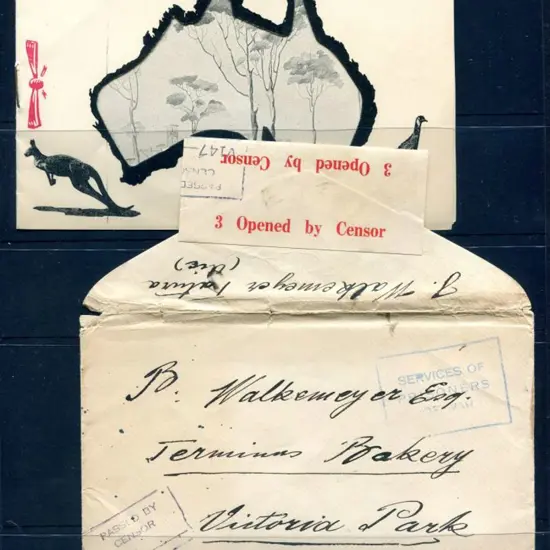 V147
PASSED
3 Opened by Censor
3 Opened by Censor
J. Walkemeyer
B. Walkemeyer Esq.
Terminus Bakery
Victoria Park
SERVICES OF
PRISONERS
OF WAR
PASSED BY
CENSOR